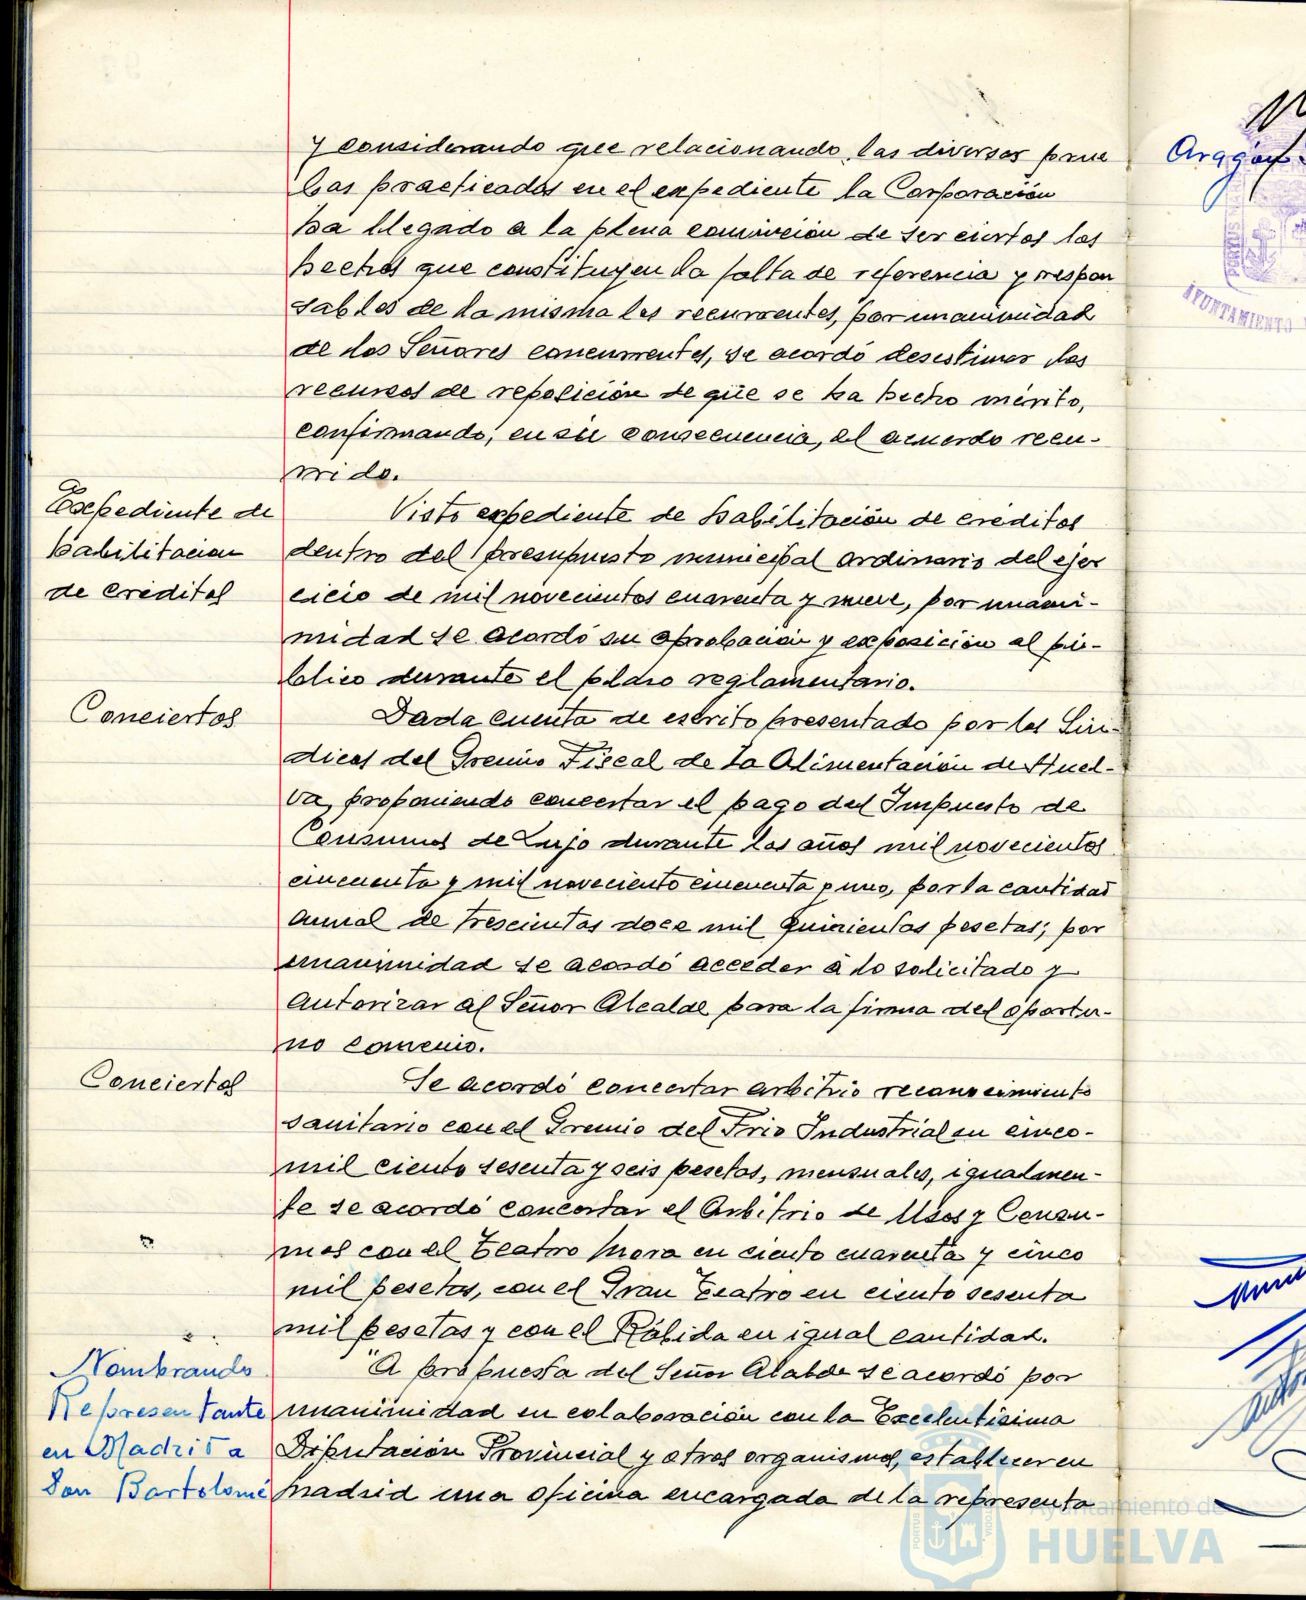 y considerando que relacionando las diversas prue
bas practicadas en el expediente la Corporación
ha llegado a la plena convicción de ser ciertos los
hechos que constituyen la falta de referencia y respon
sables de la misma los recurrentes, por unanimidad
de los Señores concurrentes, se acordó desestimar los
recursos de reposición de que se ha hecho mérito,
confirmando, en su consecuencia, el acuerdo recu-
rrido.
Expediente de
habilitacion
de creditos
Visto expediente de habilitación de creditos
dentro del presupuesto municipal ordinario del ejer
cicio de mil novecientos cuarenta y nueve, por unani-
midad se acordó su aprobación y exposición al pú-
blico durante el plazo reglamentario.
Conciertos
Dada cuenta de escrito presentado por los Sin-
dicos del Gremio Fiscal de la Alimentación de Huel-
va, proponiendo concertar el pago del Impuesto de
Consumos de Lujo durante los años mil novecientos
cincuenta y mil noveciento cincuenta y uno, por la cantidad
anual de trescientas doce mil quinientas pesetas; por
unanimidad se acordó acceder a lo solicitado y
autorizar al Señor Alcalde para la firma del oportu-
no convenio.
Conciertos
Se acordó concertar arbitrio reconocimiento
sanitario con el Gremio del Frio Industrial en cinco-
mil ciento sesenta y seis pesetas, mensuales, igualmen-
te se acordó concertar el Arbitrio de Usos y Consu-
mos con el Teatro Mora en ciento cuarenta y cinco
mil pesetas, con el Gran Teatro en ciento sesenta
mil pesetas y con el Rábida en igual cantidad.
Nombrando
Representante
en Madrid a
Don Bartolomé
A propuesta del Señor Alcalde se acordó por
unanimidad en colaboración con la Excelentísima
Diputación Provincial y otros organismos, establecer en
Madrid una oficina encargada de la representa
Aragón
AYUNTAMIENTO
Ayuntamiento de
HUELVA